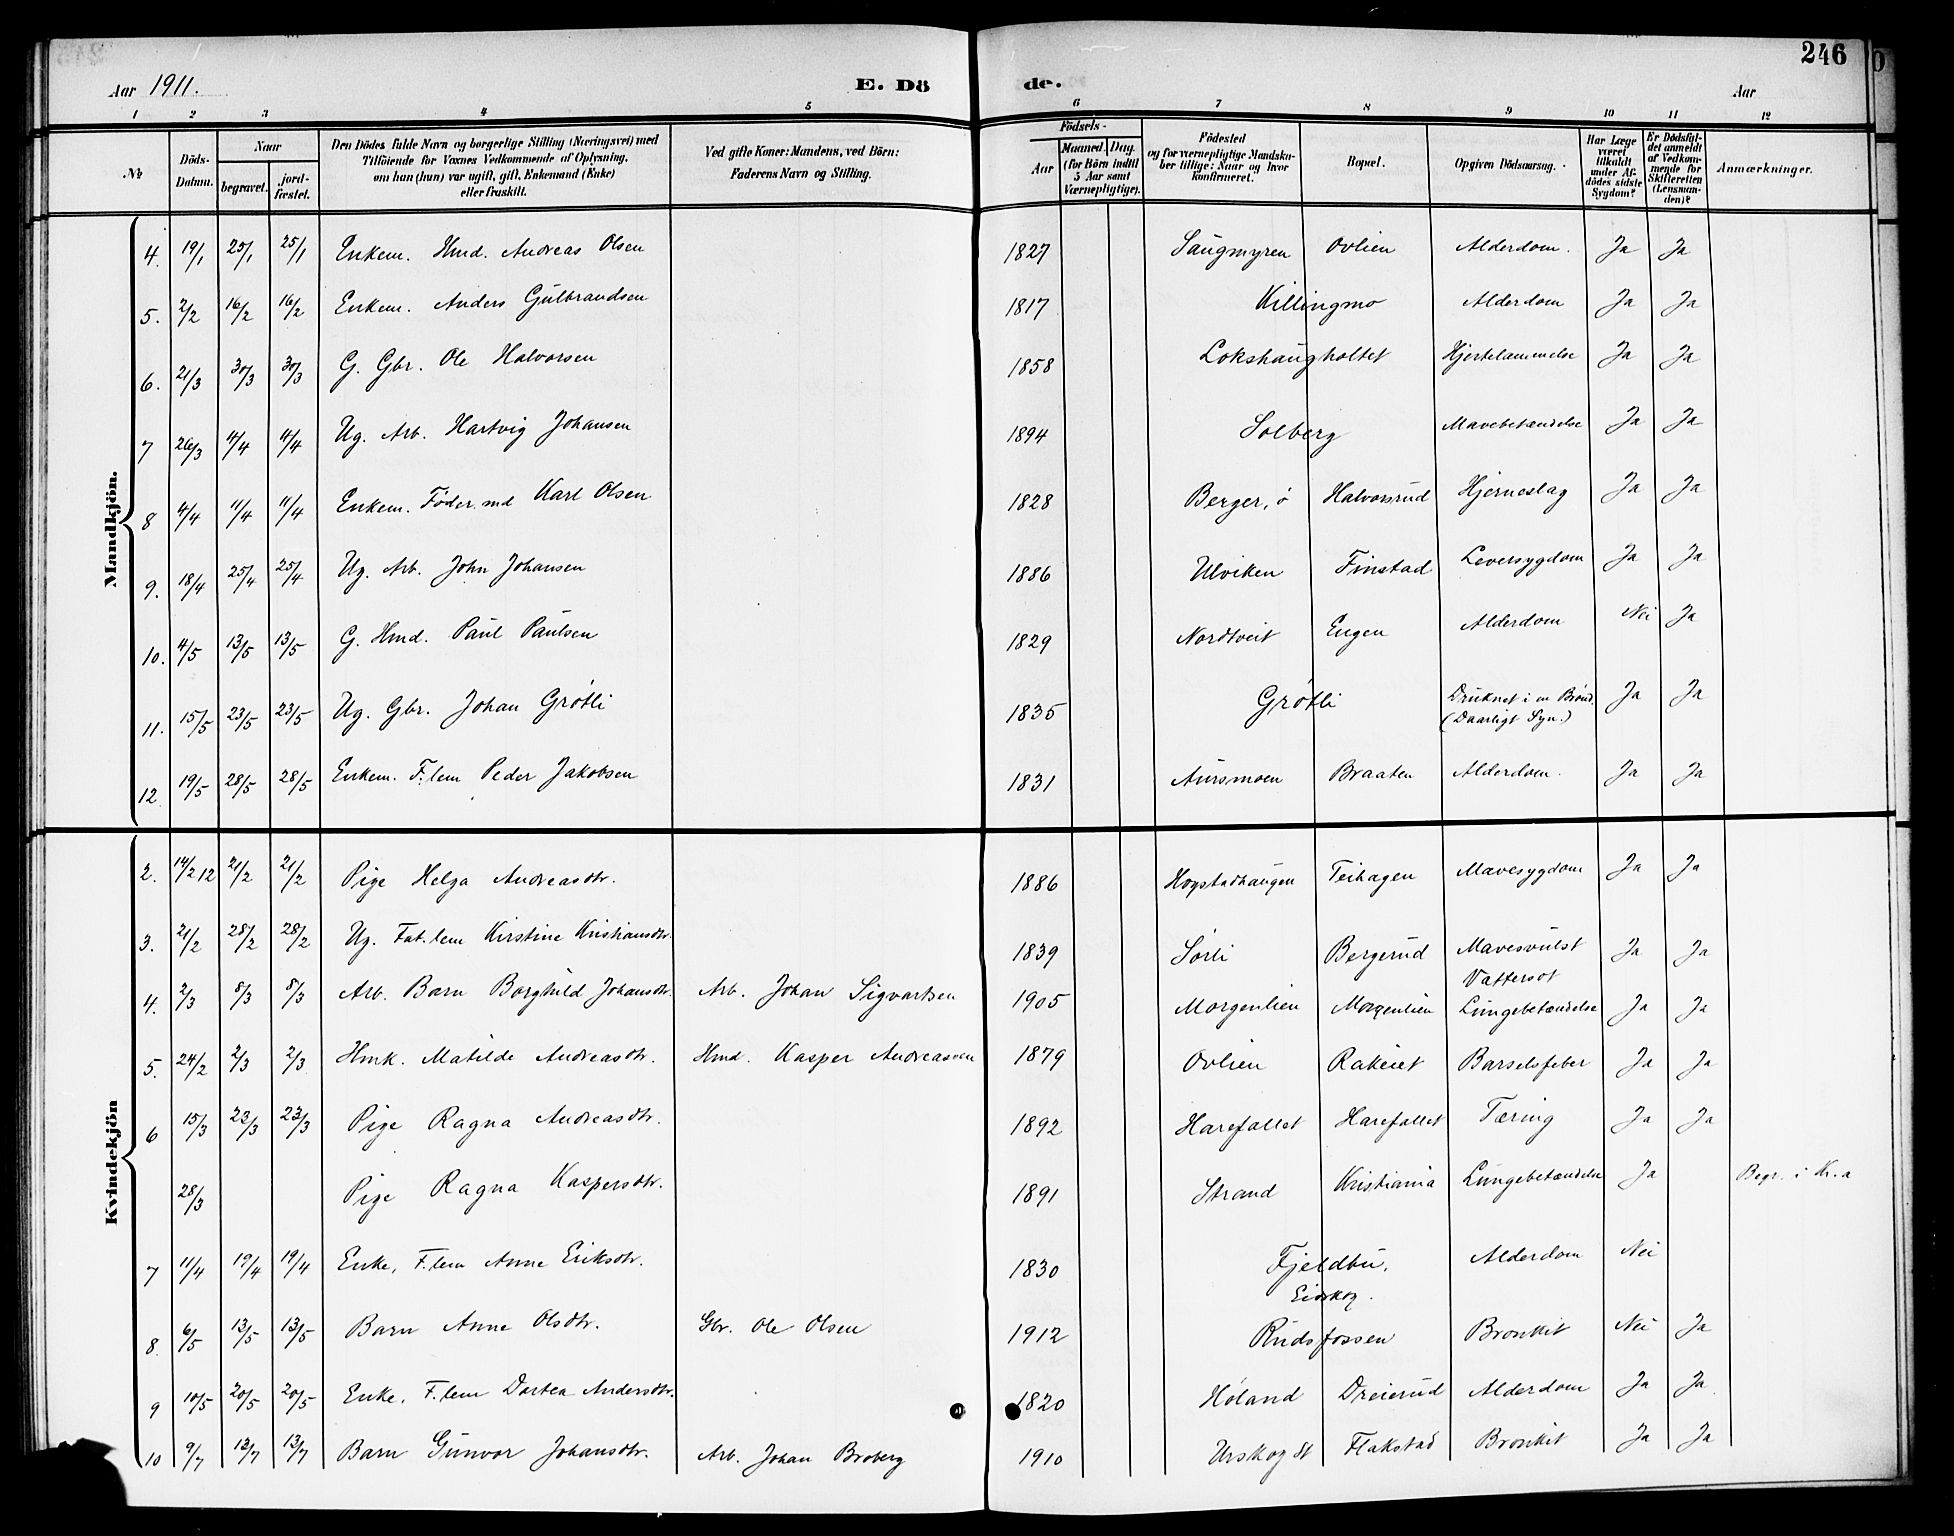 246
Aar 1911.
E. Dö
de.
Aar
1 2 3 4 5 6 7 8 9 10 11 12
№
Döds-Datum.
Naar
begravet.
jord-fæstet.
Den Dödes fulde Navn og borgerlige Stilling (Næringsvei) med
Tilföiende for Voxnes Vedkommende af Oplysning,
om han (hun) var ugift, gift, Enkemand (Enke)
eller fraskilt.
Ved gifte Koner: Mandens, ved Börn:
Faderens Navn og Stilling.
Födsels-
Aar
Maaned. Dag.
(for Börn indtil
5 Aar samt
Værnepligtige).
Födested
og for værnepligtige Mandska-
ber tillige: Naar og hvor
konfirmeret.
Bopæl.
Opgiven Dödsaarsag.
Har Læge
været
tilkaldt
under Af-
dödes sidste
Sygdom?
Er Dödsfal-
det anmeldt
af Vedkom-
mende for
Skifteretten
(Lensman-
den)?
Anmærkninger.
Mandkjön.
4. 19/1 25/1 25/1 Enkem. Hmd. Andreas Olsen 1827 Saugmyren Ovlien Alderdom. Ja Ja
5. 2/2 16/2 16/2 Enkem. Anders Gulbrandsen 1817 Killingmo Alderdom Ja Ja
6. 21/3 30/3 30/3 G. Gbr. Ole Halvorsen 1858 Lokshaugholtet Hjertelammelse Ja Ja
7 26/3 4/4 4/4 Ug. Arb. Hartvig Johansen 1894 Solberg Mavebetændelse Ja Ja
8 4/4 11/4 11/4 Enkem. Föder.md Karl Olsen 1828 Berger, ö Halvorsrud Hjerneslag Ja Ja
9. 18/4 25/4 25/4 Ug. Arb. John Johansen 1886 Ulviken Finstad Leversygdom Ja Ja
10. 4/5 13/5 13/5 G. Hmd. Paul Paulsen 1829 Nordtveit Engen Alderdom Nei Ja
11. 15/5 23/5 23/5 Ug. Gbr. Johan Grötli 1835 Grötli Druknet i en Brönd. Ja Ja
(Daarligt Syn.)
12 19/5 28/5 28/5 Enkem. F.lem Peder Jakobsen 1831 Aursmoen Braaten Alderdom. Ja Ja
Kvindekjön
2. 14/2 12 21/2 21/2 Pige Helga Andreasdtr. 1886 Hogstadhaugen Teihagen Mavesygdom Ja Ja
3. 21/2 28/2 28/2 Ug. Fat.lem Kirstine Kristiansdtr. 1839 Sörli Bergerud Mavesvulst Ja Ja
Vattersot
4. 2/3 8/3 8/3 Arb. Barn Borghild Johansdtr. Arb. Johan Sigvartsen 1905 Morgenlien Morgenlien Lungebetændelse Ja Ja
5. 24/2 2/3 2/3 Hmk. Matilde Andreasdtr. Hmd. Kasper Andreassen 1879 Ovlien Rakeiet Barselsfeber Ja Ja
6 15/3 23/3 23/3 Pige Ragna Andreasdtr. 1892 Harefallet Harefallet Tæring Ja Ja
28/3 Pige Ragna Kaspersdtr. 1891 Strand Kristiania Lungebetændelse Ja Begr. i Kr.a
7 11/4 19/4 19/4 Enke, F.lem Anne Eriksdtr. 1830 Fjeldbu, Alderdom Nei
Eidskog.
8. 6/5 13/5 13/5 Barn Anne Olsdtr. Gbr. Ole Olsen 1912 Rudsfossen Bronkit Nei Ja
9 10/5 20/5 20/5 Enke, F.lem Dortea Andersdtr. 1820 Höland Dreierud Alderdom Ja Ja
10 9/7 13/7 13/7 Barn Gunvor Johansdtr. Arb. Johan Broberg 1910 Urskog st Flakstad Bronkit Ja Ja